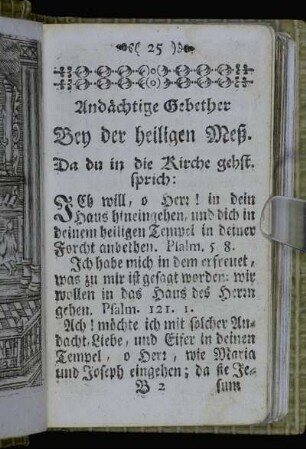 ( 25 )
Andächtige Gebether
Bey der heiligen Meß.
Da du in die Kirche gehst.
sprich:
ICh will, o Herr! in dein
Haus hineingehen, und dich in
deinem heiligen Tempel in deiner
Forcht anbethen. Psalm. 5 8.
Ich habe mich in dem erfreuet,
was zu mir ist gesagt worden: wir
wollen in das Haus des Herrn
gehen. Psalm. 121. 1.
Ach! möchte ich mit solcher An-
dacht, Liebe, und Eifer in deinen
Tempel, o Herr, wie Maria
und Joseph eingehen; da sie Je-
B 2 sum